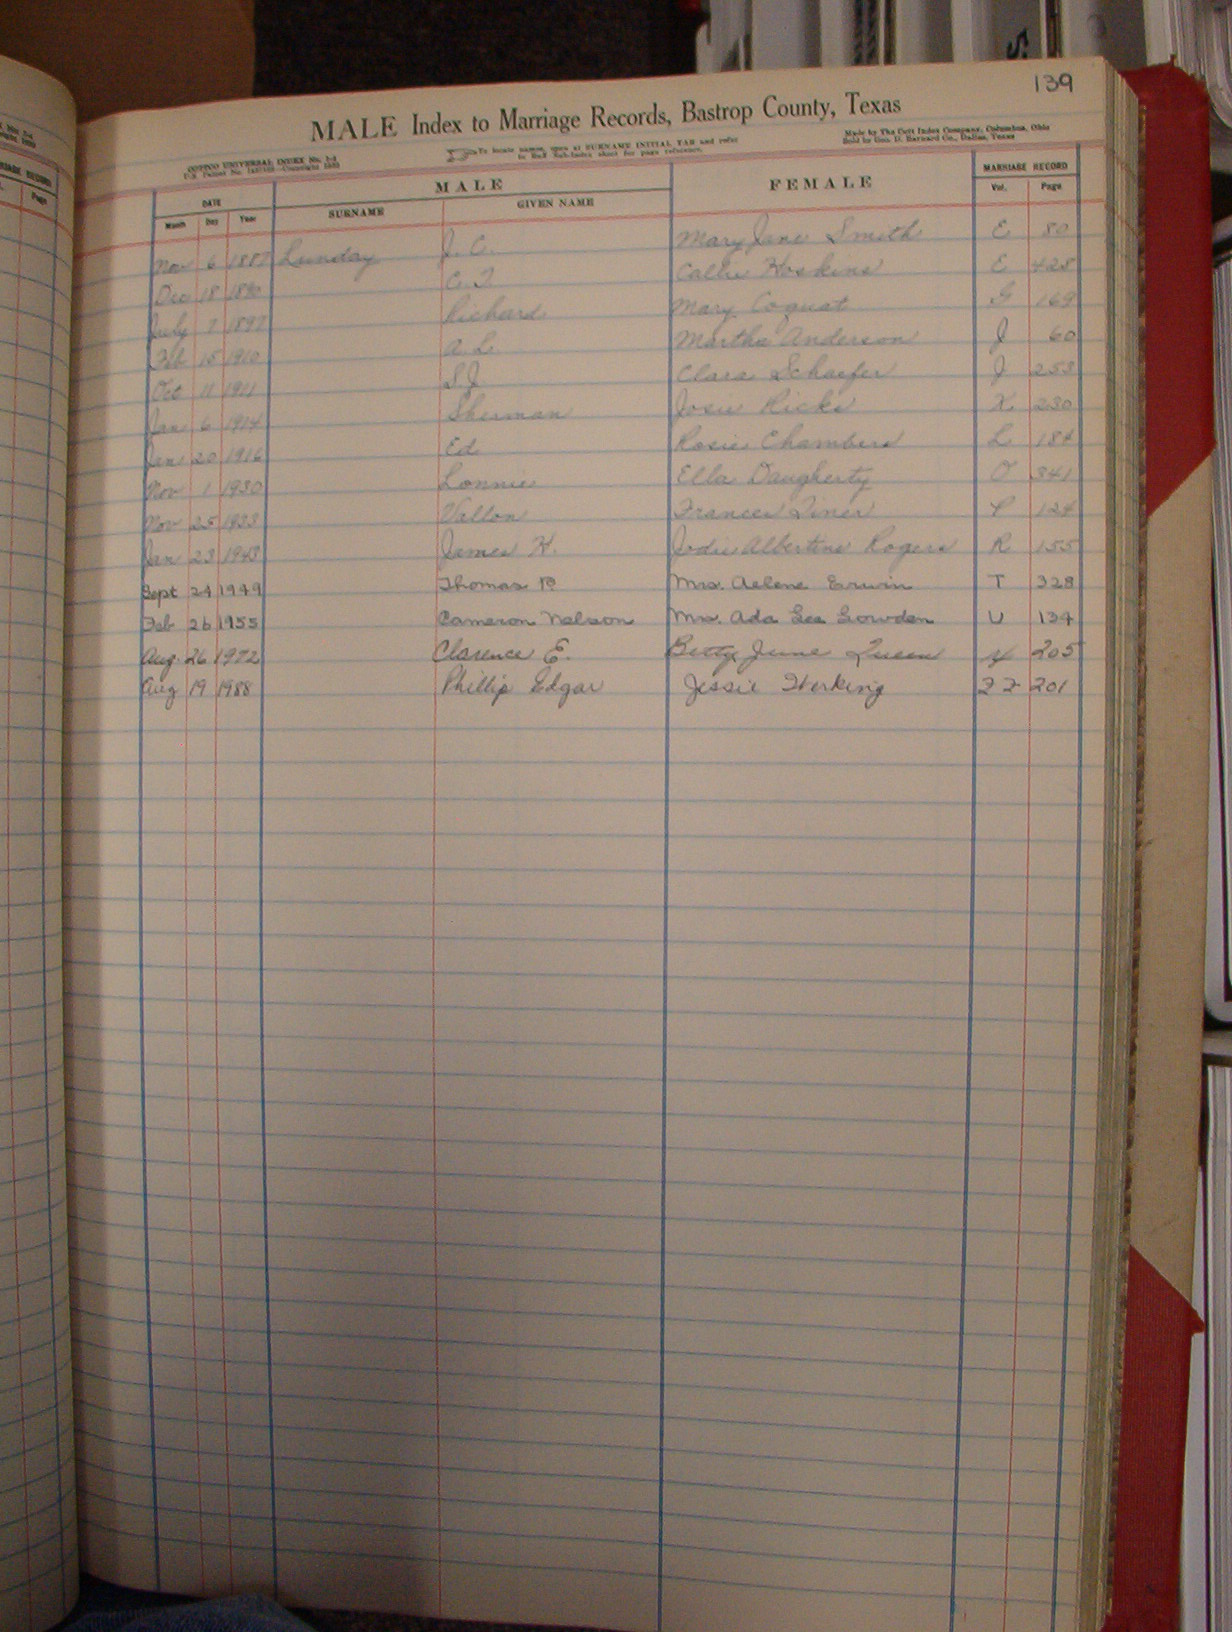 139
MALE Index to Marriage Records, Bastrop County, Texas
COTTCO UNIVERSAL INDEX
To locate names, open at SURNAME INITIAL TAB and refer
to Sub-Index sheet for page reference.
Made by The Cott Index Company, Columbus, Ohio
Sold by Geo. D. Barnard Co., Dallas, Texas
DATE MALE FEMALE MARRIAGE RECORD
Month Day Year SURNAME GIVEN NAME Vol. Page
Nov 6 1887 Lunday J. C. Mary Jane Smith E 80
Dec 18 1890 C. T. Callie Hoskins E 428
July 7 1897 Richard Mary Coquat G 169
Feb 15 1910 A. L. Martha Anderson J 60
Oct 11 1911 S J Clara Schaefer J 253
Jan 6 1914 Sherman Josie Hicks K 230
Jan 20 1916 Ed Rosie Chambers L 184
Nov 1 1930 Lonnie Ella Daugherty O 341
Nov 25 1933 Vallon Frances Tiner P 124
Jan 23 1943 James H. Jodie Albertine Rogers R 155
Sept 24 1949 Thomas R Mrs. Aelene Erwin T 328
Feb 26 1955 Cameron Nelson Mrs. Ada Lea Lowden U 134
Aug. 26 1972 Clarence E. Betty June Queen 205
Aug 19 1988 Phillip Edgar Jessie Herking 22 201